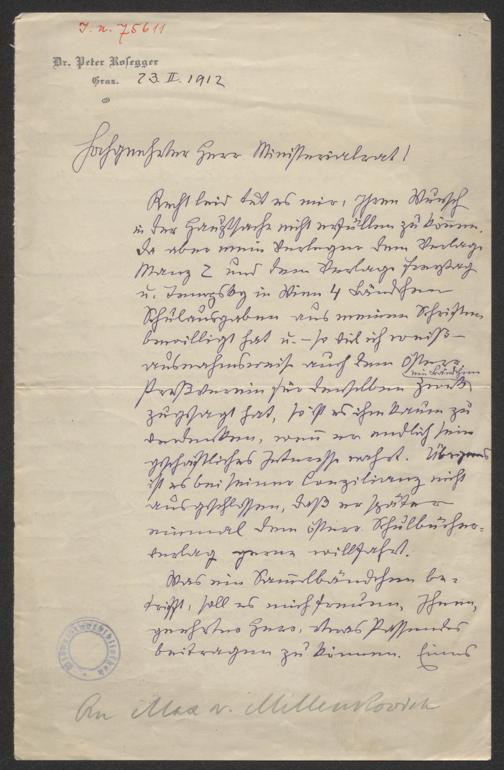 I. N. 75611
Dr. Peter Rosegger
Graz. 23. II. 1912
Hochgeehrter Herr Ministerialrat!
Recht leid tut es mir, Ihren Wunsch
in der Hauptsache nicht erfüllen zu können.
Da aber mein Verleger dem Verlage
Manz 2 und dem Verlage Freytag
u. Tempsky in Wien 4 Bändchen
Schulausgaben aus meinen Schriften
bewilligt hat u. – so viel ich weiß –
ausnahmsweise auch dem Österr.
Preßverein für denselben Zweck
ein Bändchen
zugesagt hat, so ist es ihm kaum zu
verdenken, wenn er endlich sein
geschäftliches Interesse wahrt. Übrigens
ist es bei seiner Conzilianz nicht
ausgeschlossen, daß er später
einmal dem österr. Schulbücher-
verlag gerne willfahrt.
Was ein Sammelbändchen be-
trifft, soll es mich freuen, Ihnen,
geehrter Herr, etwas Passendes
beitragen zu können. Eines
An Max v. Millenkovich